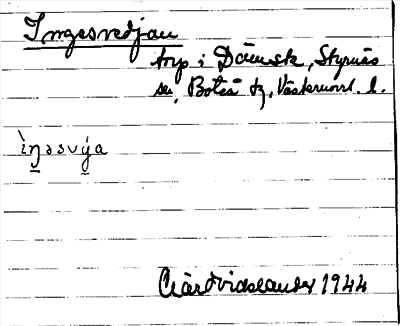 Ingesvedjan
torp i Dämsta, Styrnäs
sn, Boteå tg, Västernorrl. l.
ìŋəsvýa
C Hårdvidslander 1944